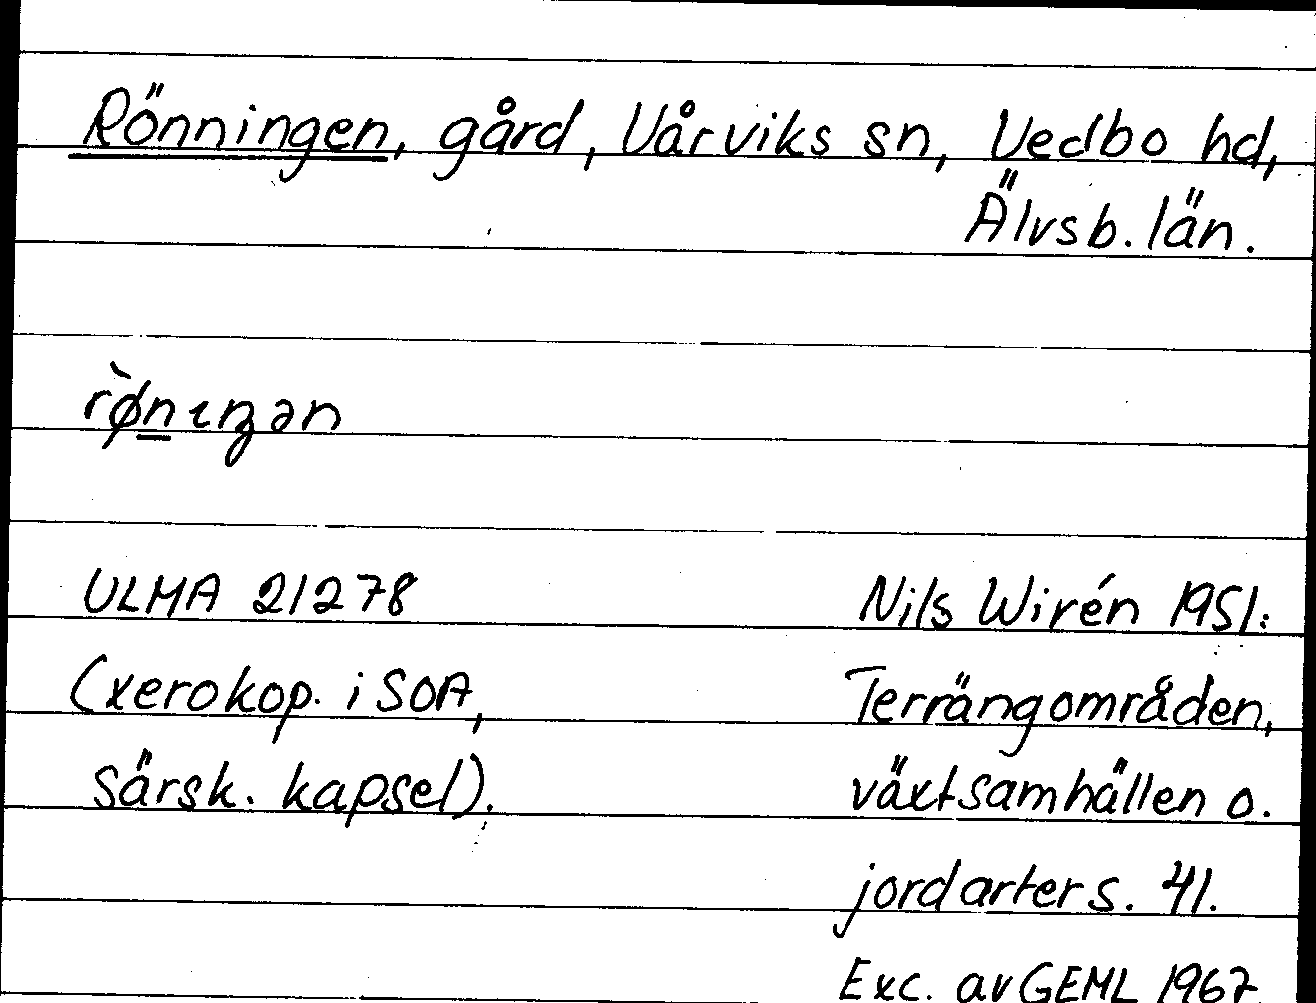 Rönningen, gård, Vårviks sn, Vedbo hd,
Älvsb. län.
rø̀nıŋən
ULMA 21278
Nils Wirén 1951:
(xerokop. i SOA,
Terrängområden,
särsk. kapsel).
växtsamhällen o.
jordarter s. 41.
Exc. av GEML 1967